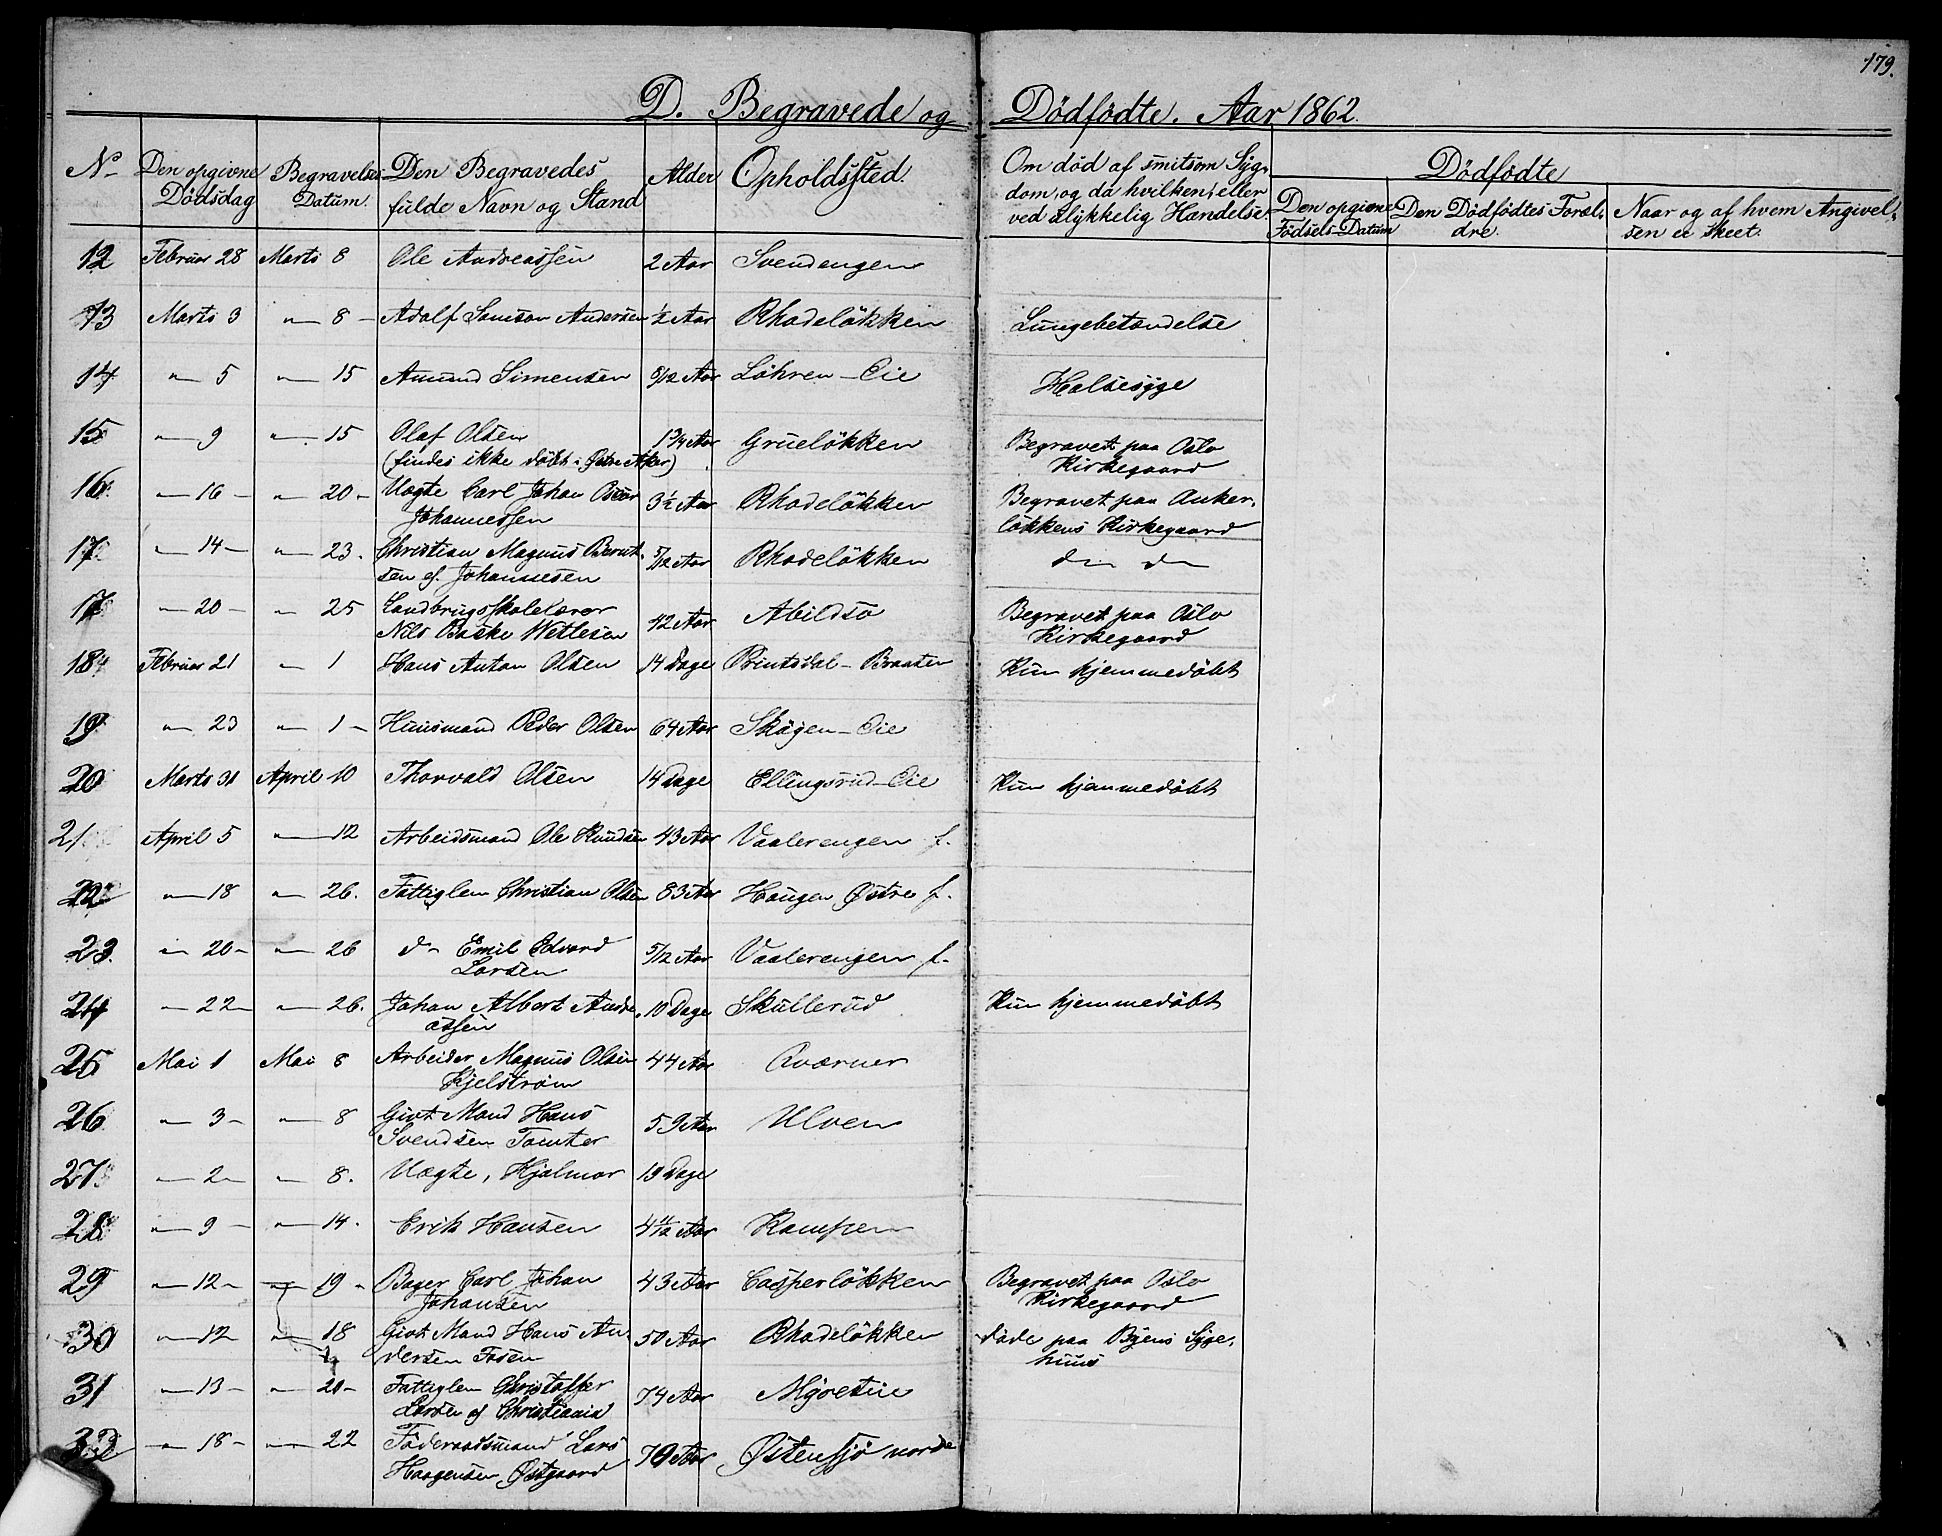 179.
D. Begravede og Dödfödte. Aar 1862.
No
Den opgivne Dödsdag
Begravelses Datum.
Den Begravedes fulde Navn og Stand
Alder
Opholdssted.
Om död af smitsom Sygdom, og da hvilken, eller ved ulykkelig Hændelse
Dödfödte
Den opgivne Födsels-Datum
Den Dödfödtes Forældre.
Naar og af hvem Angivelsen er skeet.
12 Februar 28 Marts 8 Ole Andreassen 2 Aar Svendengen
13 Marts 3 " 8 - Adolf Samson Andersen ½ Aar Rhodelökken Lungebetændelse
14 " 5 " 15 Amund Simensen 5/12 Aar Löhren-Eie Halsesyge
15 " 9 " 15 Olaf Olsen 1¾ Aar Gruelökken Begravet paa Oslo
(findes ikke döbt i Östre Aker) Kirkegaard
16 " 16 - " 20 - Uægte Carl Johan Oscar 3½ Aar Rhodelökken Begravet paa Anker-
Johannessen lökkens Kirkegaard
17 " 14 - " 23. Christian Magnus Bernt- 5/12 Aar Rhodelökken do do
sen el. Johannesen
17 " 20 - " 25 Landbrugsskolelærer Abildsö Begravet paa Oslo
Nils Wettesen 42 Aar Kirkegaard
18 Februar 21 " 1 Hans Anton Olsen 14 Dage Printsdal-Braaten Kun hjemmedöbt
19 " 23 " 1 - Huusmand Peder Olsen 64 Aar Skögen-Eie
20 Marts 31 April 10 Thorvald Olsen 14 Dage Ellingsrud-Eie Kun hjemmedöbt
21 April 5 " 12 Arbeidsmand Ole Knudsen 43 Aar Vaalerengen f.
22 " 18 " 26. Fattiglem Christian Olsen 83 Aar Haugen Östre f.
23. " 20 - " 26 do Emil Edvard 5/12 Aar Vaalerengen f.
Larsen
24 " 22 - " 26. Johan Albert Andre- 10 Dage Skullerud Kun hjemmedöbt
assen
25 Mai 1 Mai 8 Arbeider Magnus Olsen 44 Aar Qværner
Kjelström
26 " 3 - " 8 Givt Mand Hans 59 Aar Ulven
Svendsen Tomter
27 " 2 - " 8. Uægte, Hjalmar 19 Dage
28 " 9 - " 14. Erik Hansen 4 11/12 Aar Kampen
29 " 12 - " 19 - Bager Carl Johan 43 Aar Casperlökken Begravet paa Oslo
Johansen Kirkegaard
30 " 12 " 18 Givt Mand Hans An- 50 Aar Rhodelökken döde paa Byens Syge-
dersen Fosen huus
31 " 13 - " 20 - Fattiglem Christoffer 74 Aar
Larsen af Christiania
" 18 - " 22 Föderaadsmand Lars 79 Aar Östensjö nordre
Haagensen Östgaard